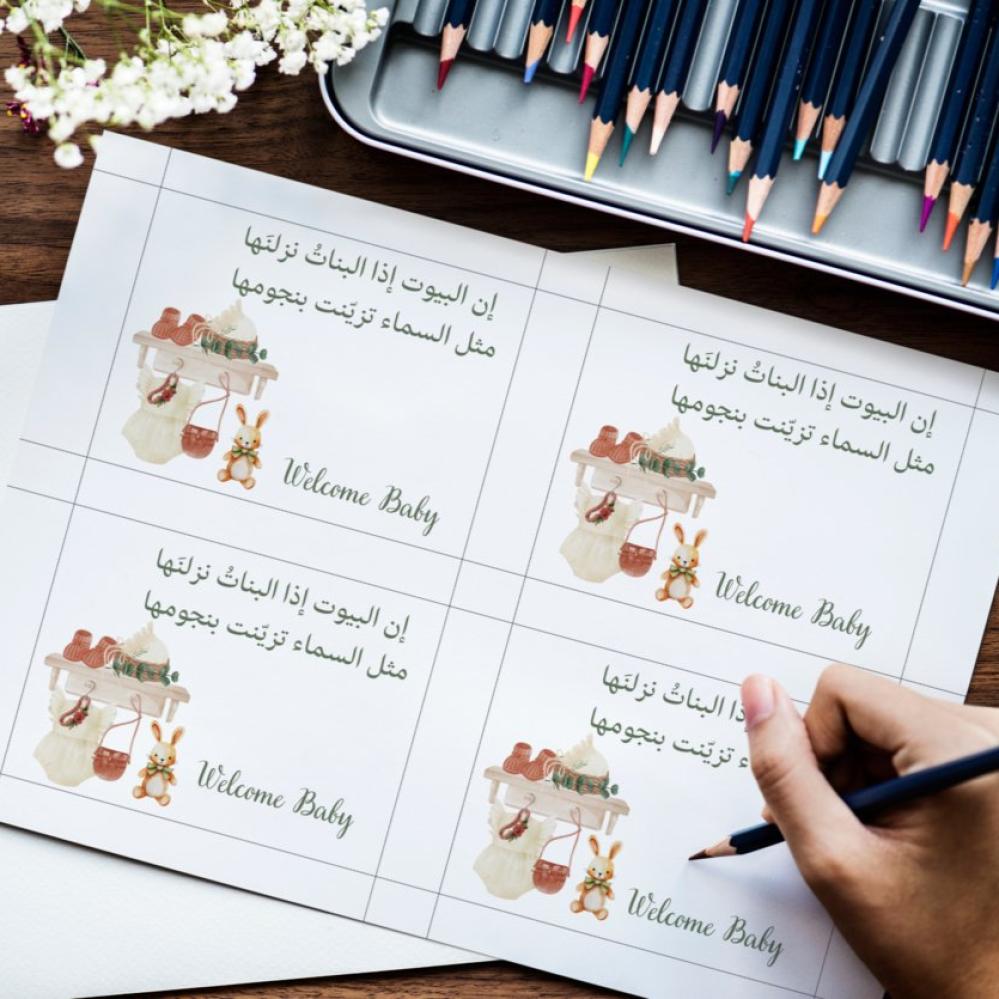 إن البيوت إذا البناتُ نزلنَها
مثل السماء تزيّنت بنجومها
Welcome Baby
إن البيوت إذا البناتُ نزلنَها
مثل السماء تزيّنت بنجومها
Welcome Baby
إن البيوت إذا البناتُ نزلنَها
مثل السماء تزيّنت بنجومها
Welcome Baby
البناتُ نزلنَها
تزيّنت بنجومها
Welcome Baby